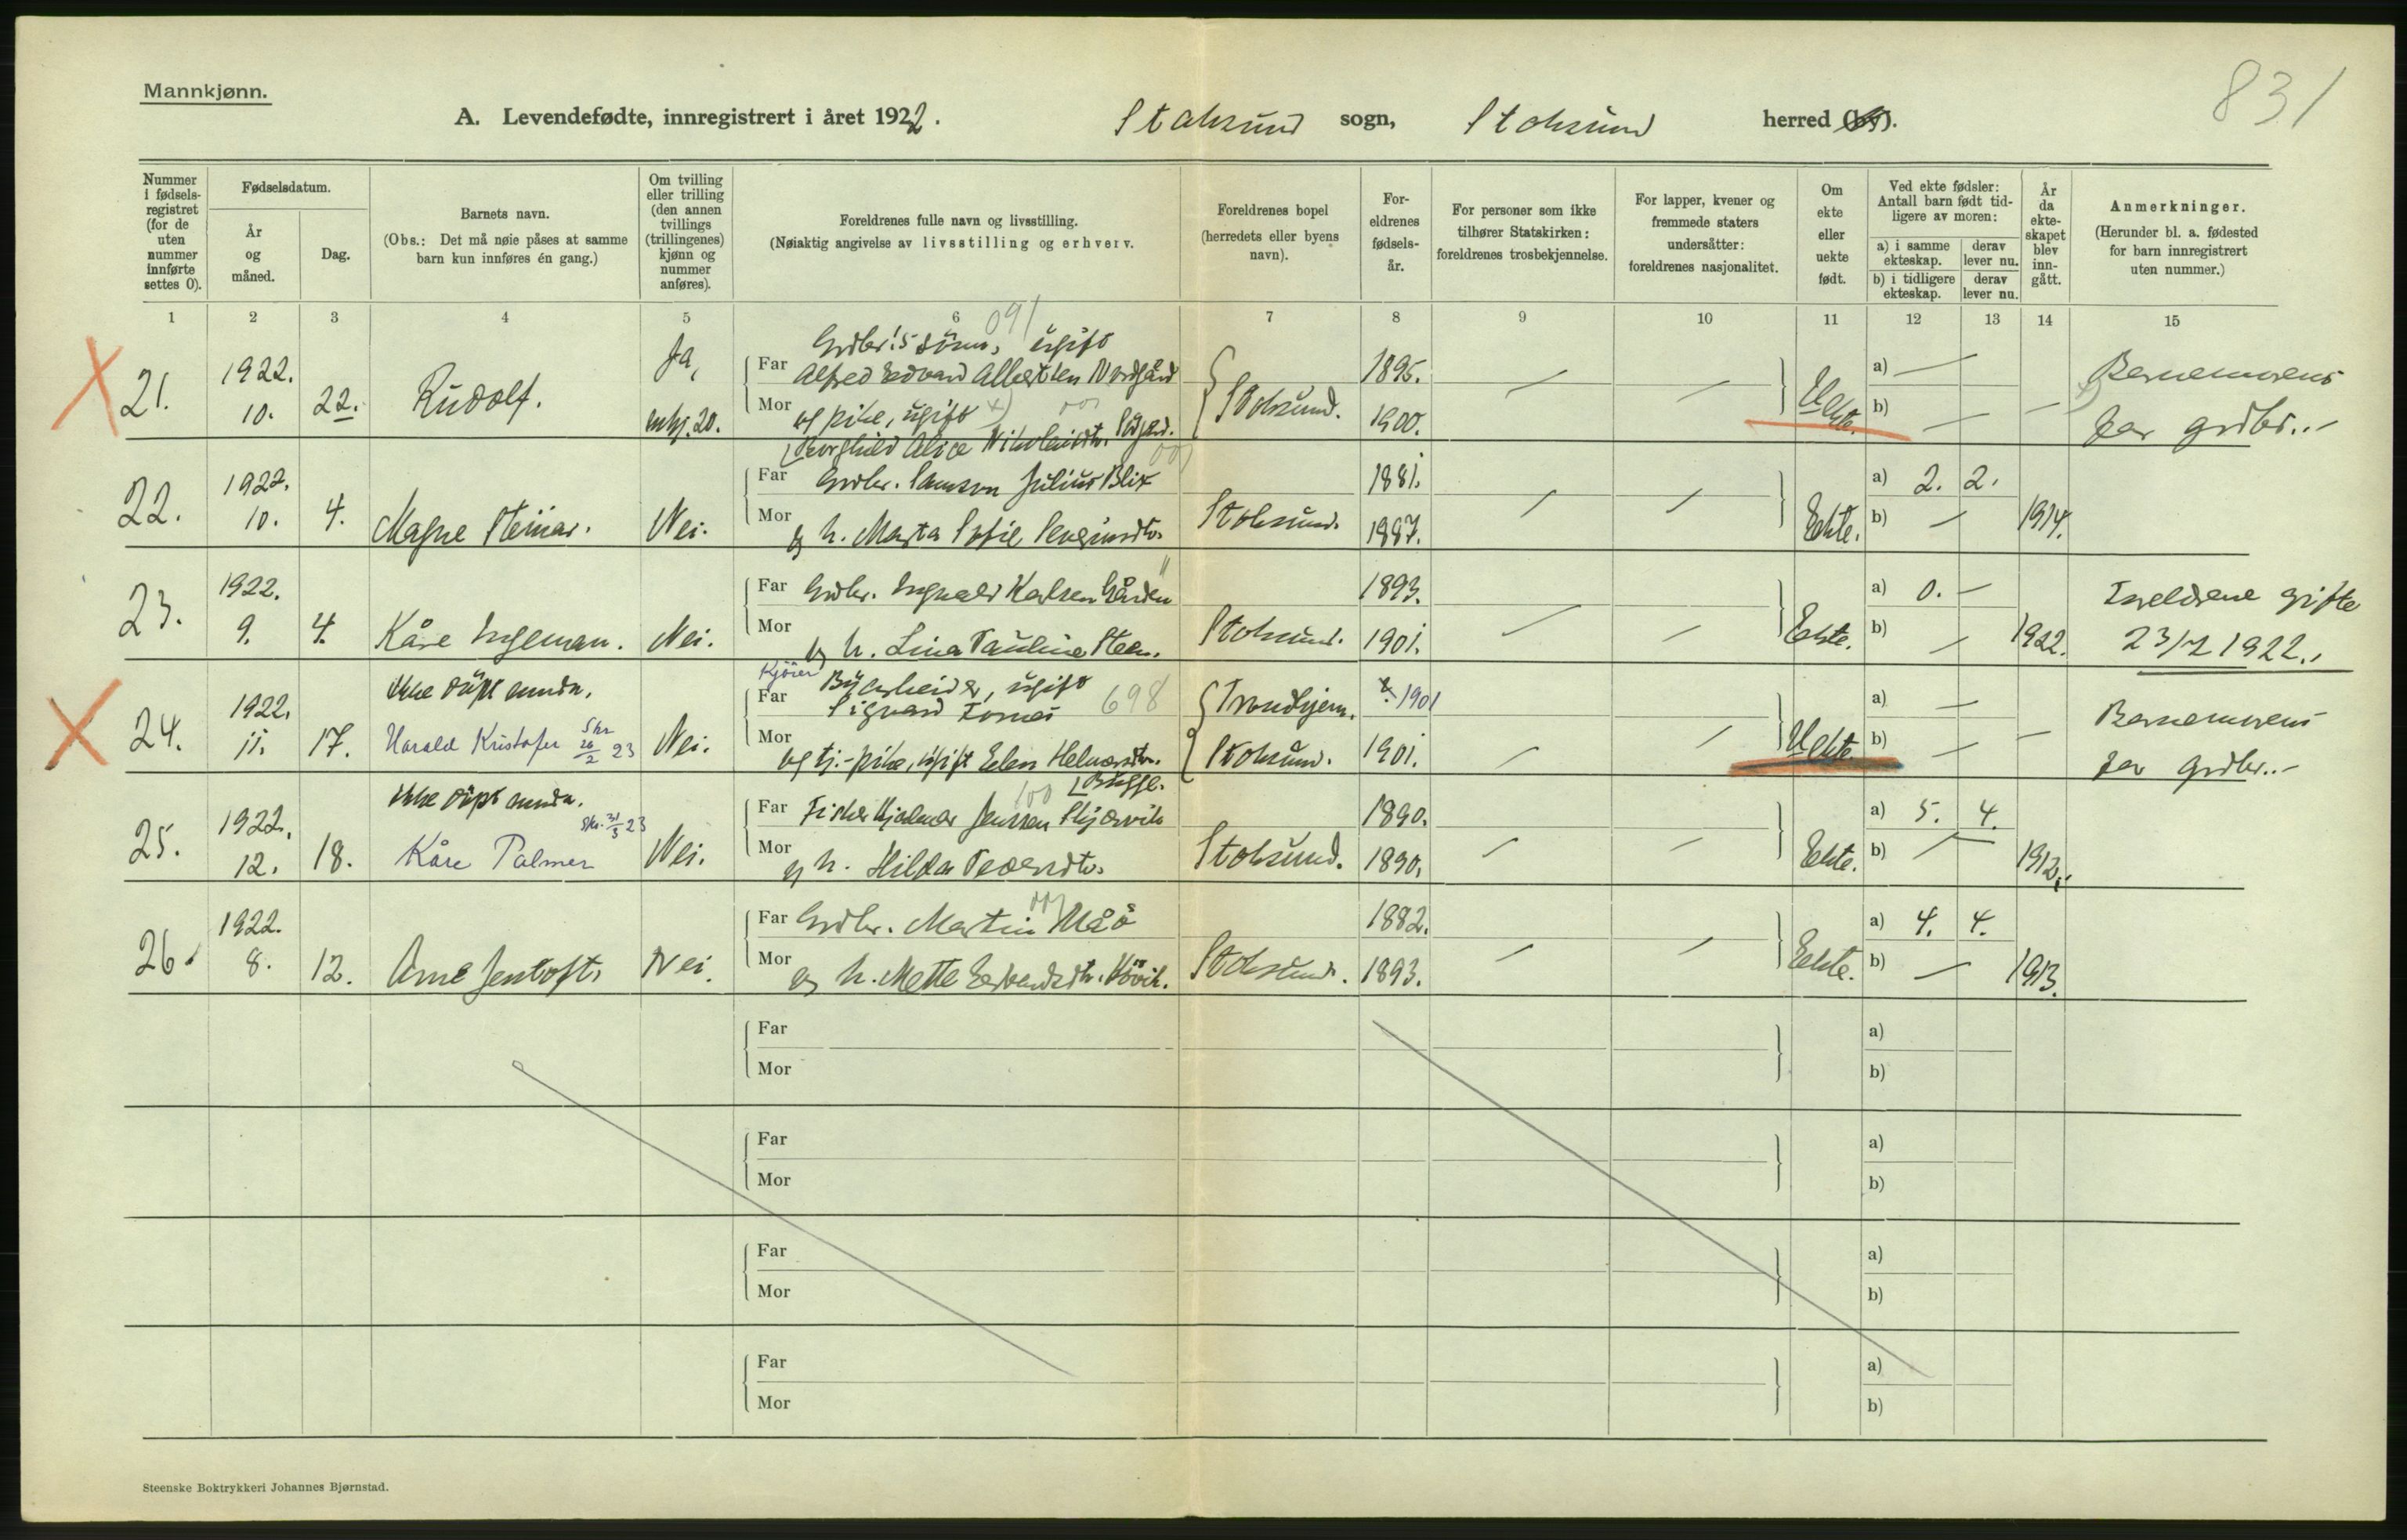 831
Mannkjønn.
A. Levendefødte, innregistrert i året 1922. Stoksund sogn, Stoksund herred (by).
Nummer i fødsels-registret (for de uten nummer innførte settes 0).
Fødselsdatum.
År og måned.
Dag.
Barnets navn.
(Obs.: Det må nøie påses at samme barn kun innføres én gang.)
Om tvilling eller trilling (den annen tvillings (trillingenes) kjønn og nummer anføres).
Foreldrenes fulle navn og livsstilling.
(Nøiaktig angivelse av livsstilling og erhverv.
Foreldrenes bopel (herredets eller byens navn).
For-eldrenes fødsels-år.
For personer som ikke tilhører Statskirken: foreldrenes trosbekjennelse.
For lapper, kvener og fremmede staters undersåtter: foreldrenes nasjonalitet.
Om ekte eller uekte født.
Ved ekte fødsler: Antall barn født tid-ligere av moren:
a) i samme ekteskap.
derav lever nu.
b) i tidligere ekteskap.
derav lever nu.
År da ekte-skapet blev inn-gått.
Anmerkninger.
(Herunder bl. a. fødested for barn innregistrert uten nummer.)
1 2 3 4 5 6 7 8 9 10 11 12 13 14 15
091
X 21. 1922. 10. 22. Rudolf. Ja,
Far Grdbr.'s sønn, ugift
Alfred Edvard Albertsen Nordgård 1895.
Mor og pike, ugift x) Stoksund. 1900. Uekte. a) — b) — —
Borghild Alice Nikolaisdtr.
Barnemorens far grdbr.
22. 1922. 10. 4. Magne Steinar. Nei.
Far Grdbr. Samson Julius Blix 1881. a) 2. 2.
Mor og h. Marta Sofie Stoksund. 1887. Ekte. b) — 1914.
23. 1922. 9. 4. Kåre Ingeman. Nei.
Far Grdbr. Ingvald Karlsen Gården 1893. a) 0. —
Mor og h. Lina Pauline Steen. Stoksund. 1901. Ekte. b) — 1922.
Foreldrene gifte 23/7 1922.
Ikke døpt ennda.
X 24. 1922. 11. 17. Harald Kristofer Skr 26/2 23 Nei.
Kjører
Far Byarbeider, ugift
Sigvard Fornes 698 Trondhjem. 1901 a) —
Mor og tj.-pike, ugift Elen Helmersdtr. Stoksund. 1901. Uekte. b) — —
Bugge.
Barnemorens far grdbr.
Ikke døpt ennda.
25. 1922. 12. 18. Kåre Palmer Skr. 31/3 23 Nei.
100
Far Fisker Hjalmar Jensen Skjærvik 1890. a) 5. 4.
Mor og h. Hilda Pedersdtr. Stoksund. 1890. Ekte. b) — 1912.
26. 1922. 8. 12. Arne Jentoft. Nei.
Far Grdbr. Martin Måø 1882. a) 4. 4.
Mor og h. Mette Stoksund. 1893. Ekte. b) — 1913.
Far a)
Mor b)
Far a)
Mor b)
Far a)
Mor b)
Far a)
Mor b)
Steenske Boktrykkeri Johannes Bjørnstad.